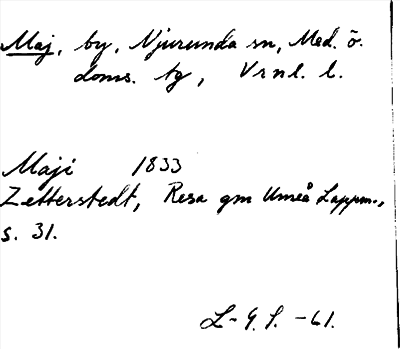 Maj, by, Njurunda sn, Med. ö.
doms. tg, Vrnl. l.
Maji 1833
Zetterstedt, Resa gm Umeå Lappm.,
s. 31.
L-G. S. -61.